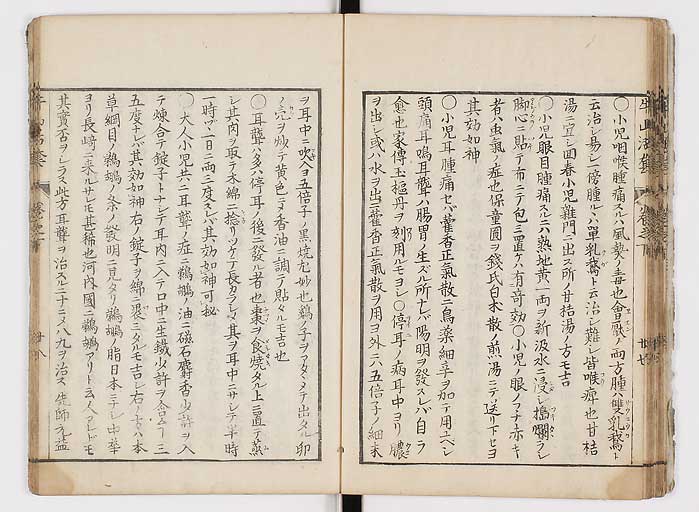 〇小児咽喉腫痛スルハ風熱ノ毒也會厭ノ両方腫ハ雙乳鵞ト
云治シ易シ一傍腫ルハ單乳鵞ト云治シ難シ皆喉痺也甘桔
湯ニ宜シ回春小児雜門ニ出ス所ノ甘桔湯ノ方モ吉
〇小児眼目腫痛スルニ六熟地黄一両ヲ新汲水ニ浸シ搗爛ラシ
脚心ニ貼テ布ニテ包ミ置ケハ有奇効〇小児ノ眼ノフチ赤キ
者ハ虫氣ノ症也保童圓ヲ錢氏白朮散ノ煎湯ニテ送リ下セヨ
其効如神
〇小児耳腫痛セハ藿香正氣散ニ烏薬細辛ヲ加テ用ユヘシ
頭痛耳鳴耳聾ハ腸胃ノ生スル所ナレハ陽明ヲ發スレハ自ラ
愈也家傳玉樞丹ヲ刻用ルモヨシ〇停耳ノ病耳中ヨリ膿
ヲ出シ或ハ水ヲ出ニ藿香正氣散ヲ用ヨ外ニハ五倍子ノ細末
ヲ耳中ニ吹入ヨ五倍子ノ黒焼尤妙也鵞ノ子ヲアタヽメテ出タル卵
ノ売ヲ炒テ黄色ニメ香油ニ調テ貼タルモ吉也
〇耳聾ハ多ハ停耳ノ後ニ發ル者也棗ヲ食焼タル上ニ置テ蒸
シ其肉ヲ取テ木綿ニ捻リツケテ長カラシメ其ヲ耳中ニサシテ半時
一時ツヽ一日ニ両三度スレハ其効如神可秘
〇大人小児共ニ耳聾ノ症ニ鵜鶘ノ油ニ磁石麝香少許ヲ入
テ煉合テ錠子トナシテ耳内ニ入テ口中ニ生鐵少許ヲ含ム一三
五度ナレハ其効如神右ノ錠子ヲ綿ニ裹ミタルモ吉シ右ノ方ハ本
草綱目ノ鵜鶘ノ条ノ發明ニ見タリ鵜鶘ノ脂日本ニナシ中華
ヨリ長崎ニ来ルサレモ甚稀也河内國ニ鵜鶘アリト云人アレトモ
其實否ヲシラス此方耳聾ヲ治スル二十ニメ八九ヲ治ス先師元益